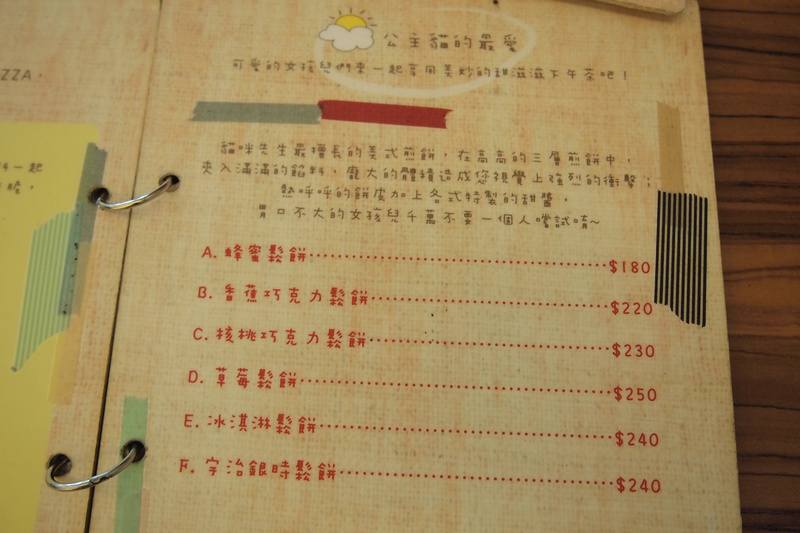 ZZA,
一起
公主貓的最愛
可愛的女孩兒們來一起享用美妙的甜滋滋下午茶吧!
貓咪先生最擅長的美式煎餅，在高高的三層煎餅中，
夾入滿滿的餡料，龐大的體積造成您視覺上強烈的衝擊；
熱呼呼的餅皮加上各式特製的甜醬，
胃口不大的女孩兒千萬不要一個人嚐試唷~
A. 蜂蜜鬆餅 $180
B. 香蕉巧克力鬆餅 $220
C. 核桃巧克力鬆餅 $230
D. 草莓鬆餅 $250
E. 冰淇淋鬆餅 $240
F. 宇治銀時鬆餅 $240